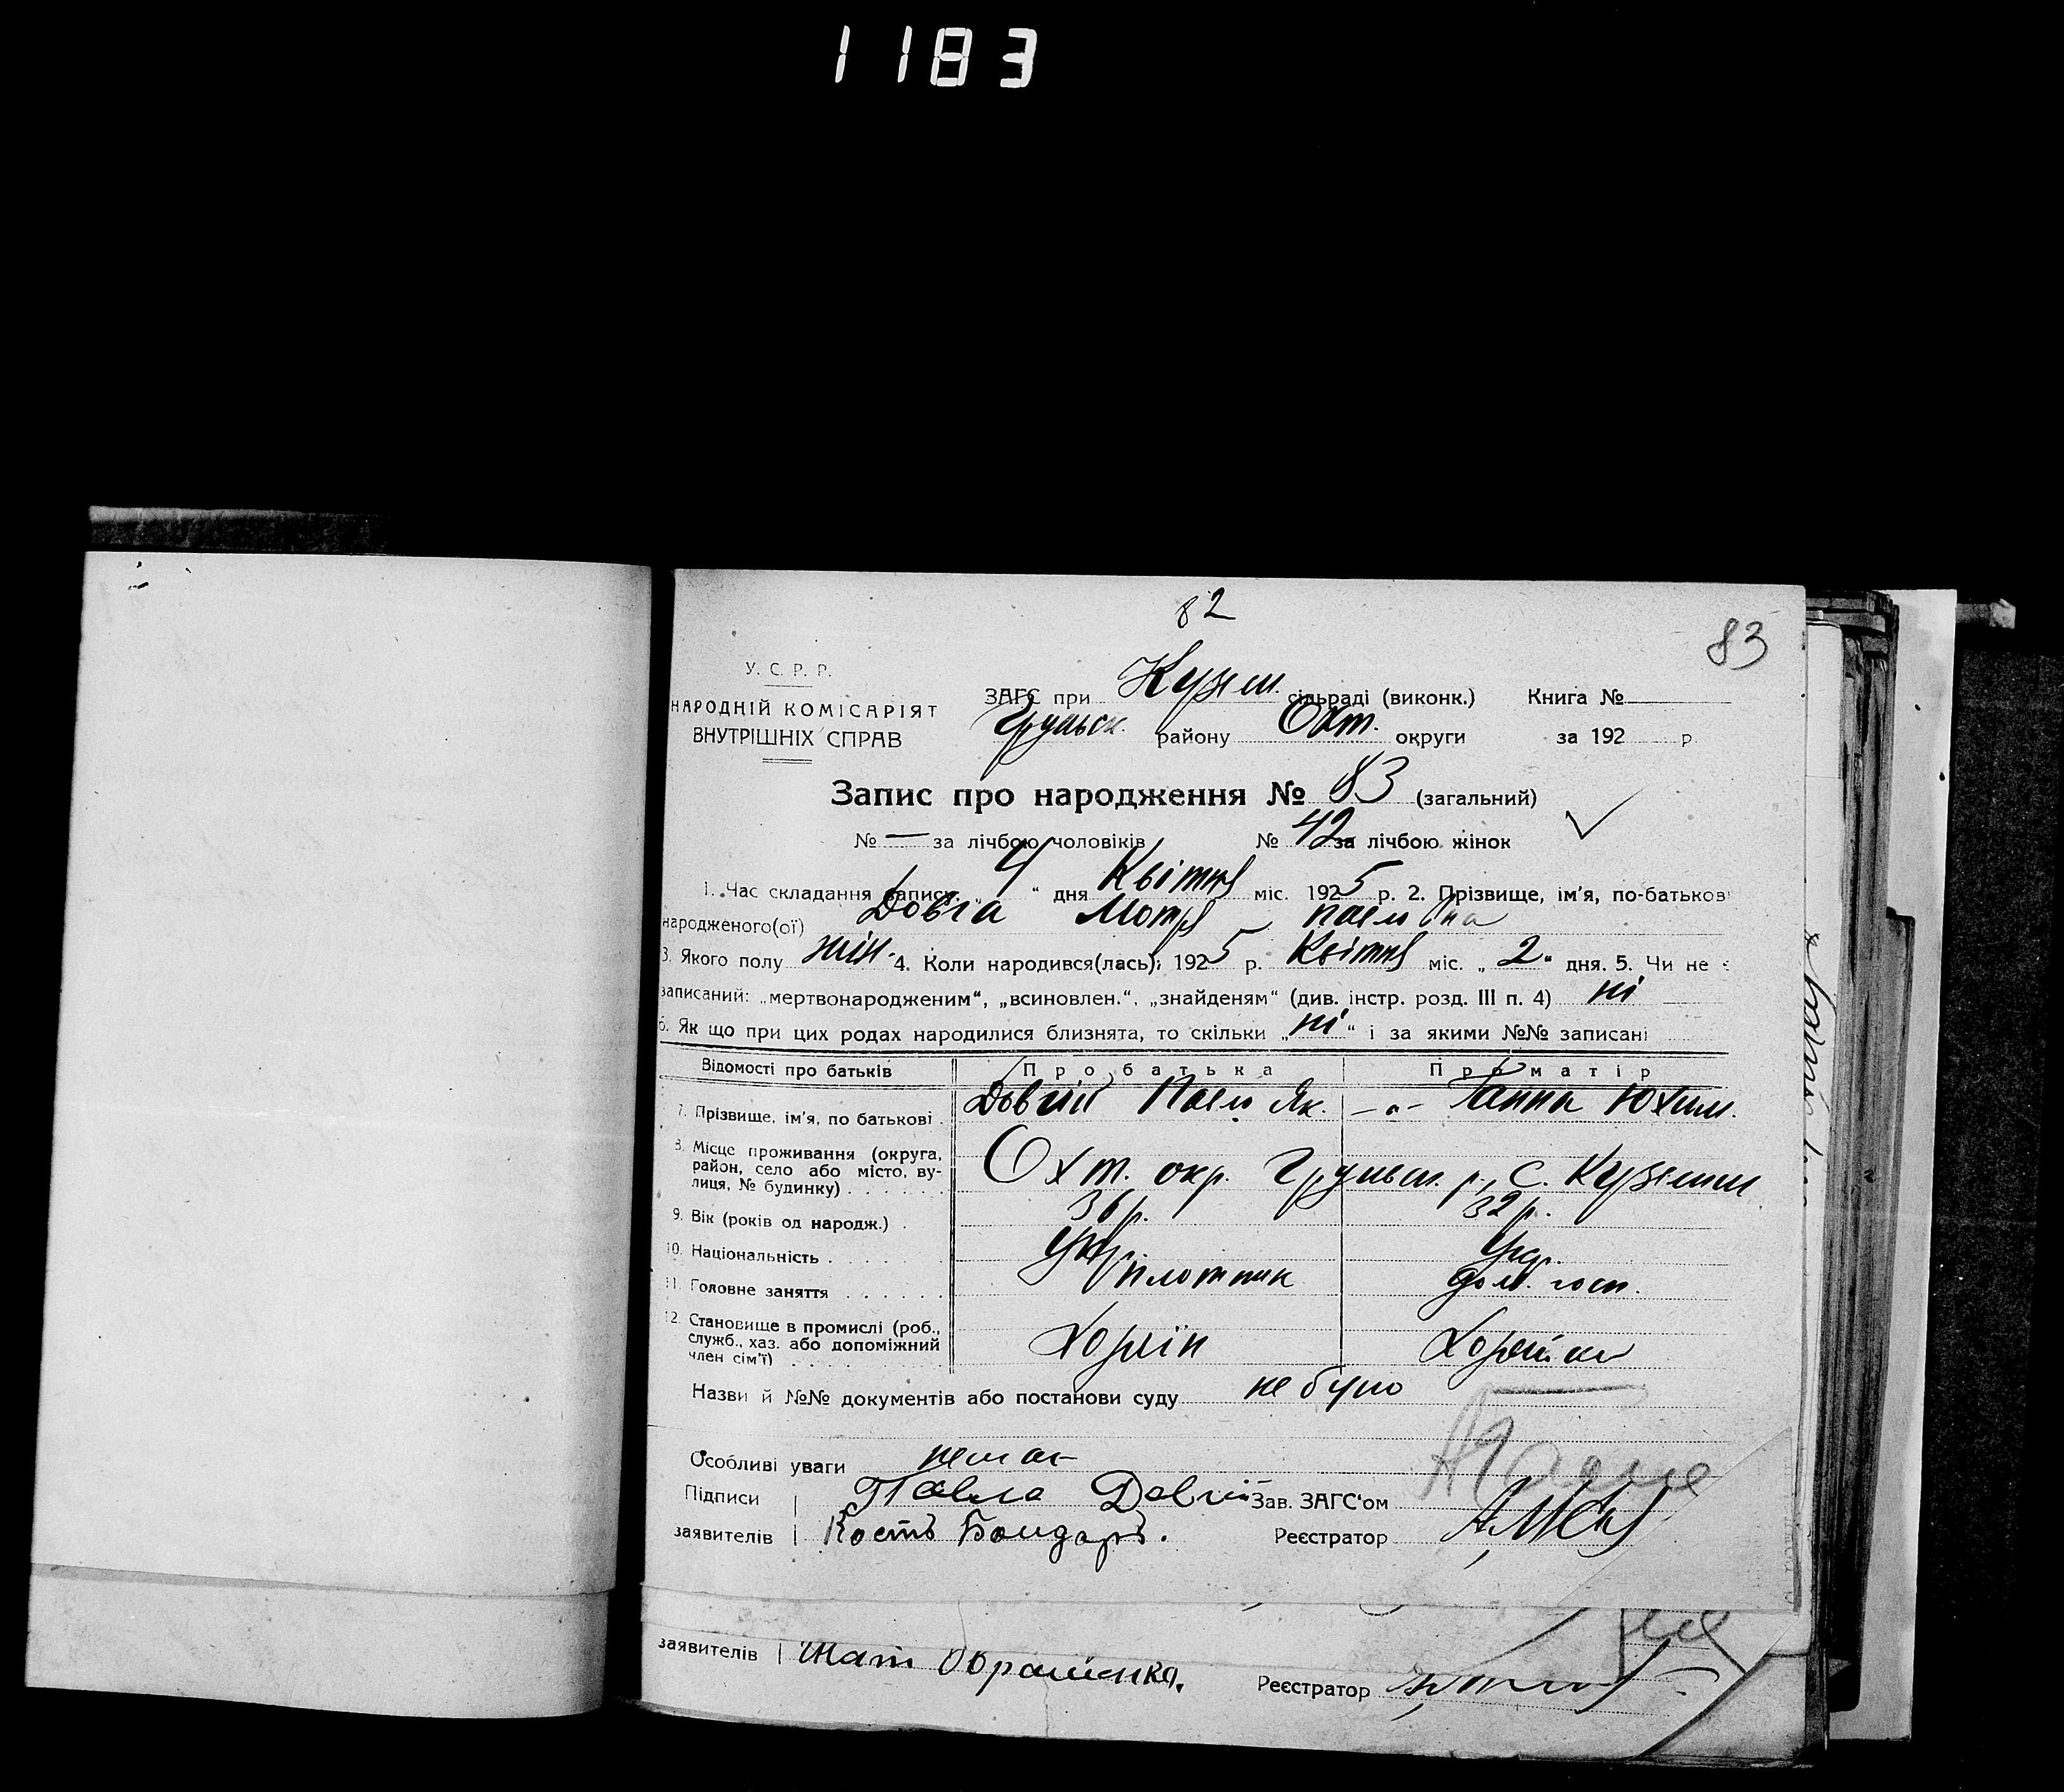 1183
82
83
У. С. Р. Р.
НАРОДНІЙ КОМІСАРІЯТ
ВНУТРІШНІХ СПРАВ
ЗАГС при Кузем. сільраді (виконк.) Книга №
Грунськ. району Охт. округи за 192 р.
Запис про народження № 83 (загальний)
№ — за лічбою чоловіків № 42 за лічбою жінок
1. Час складання запису „ 4 “ дня Квітня міс. 1925 р. 2. Прізвище, ім'я, по-батькові
народженого(ої) Довга Мотря Павловна
3. Якого полу жін. 4. Коли народився(лась): 1925 р. Квітня міс. „ 2 “ дня. 5. Чи не є
записаний: „мертвонародженим“, „всиновлен.“, „знайденям“ (див. інстр. розд. III п. 4) ні
6. Як що при цих родах народилися близнята, то скільки „ ні “ і за якими №№ записані
Відомості про батьків Про батька Про матір
7. Прізвище, ім'я, по батькові . Довгий Павло Як. —„— Ганна Юхим.
8. Місце проживання (округа,
район, село або місто, ву-
лиця, № будинку) . . . . . . Охт. окр. Грунськ. р., с. Куземин
9. Вік (років од народж.) . 36 р. 32 р.
10. Національність . . . . . . Укр. Укр.
11. Головне заняття . . . . . . плотник дом. госп.
12. Становище в промислі (роб.,
служб., хаз. або допоміжний
член сім'ї) . . . .
Назви й №№ документів або постанови суду не було
Особливі уваги немає
Підписи Павло Довгий Зав. ЗАГС'ом
заявителів Кость Бондарь. Реєстратор
заявителів Реєстратор